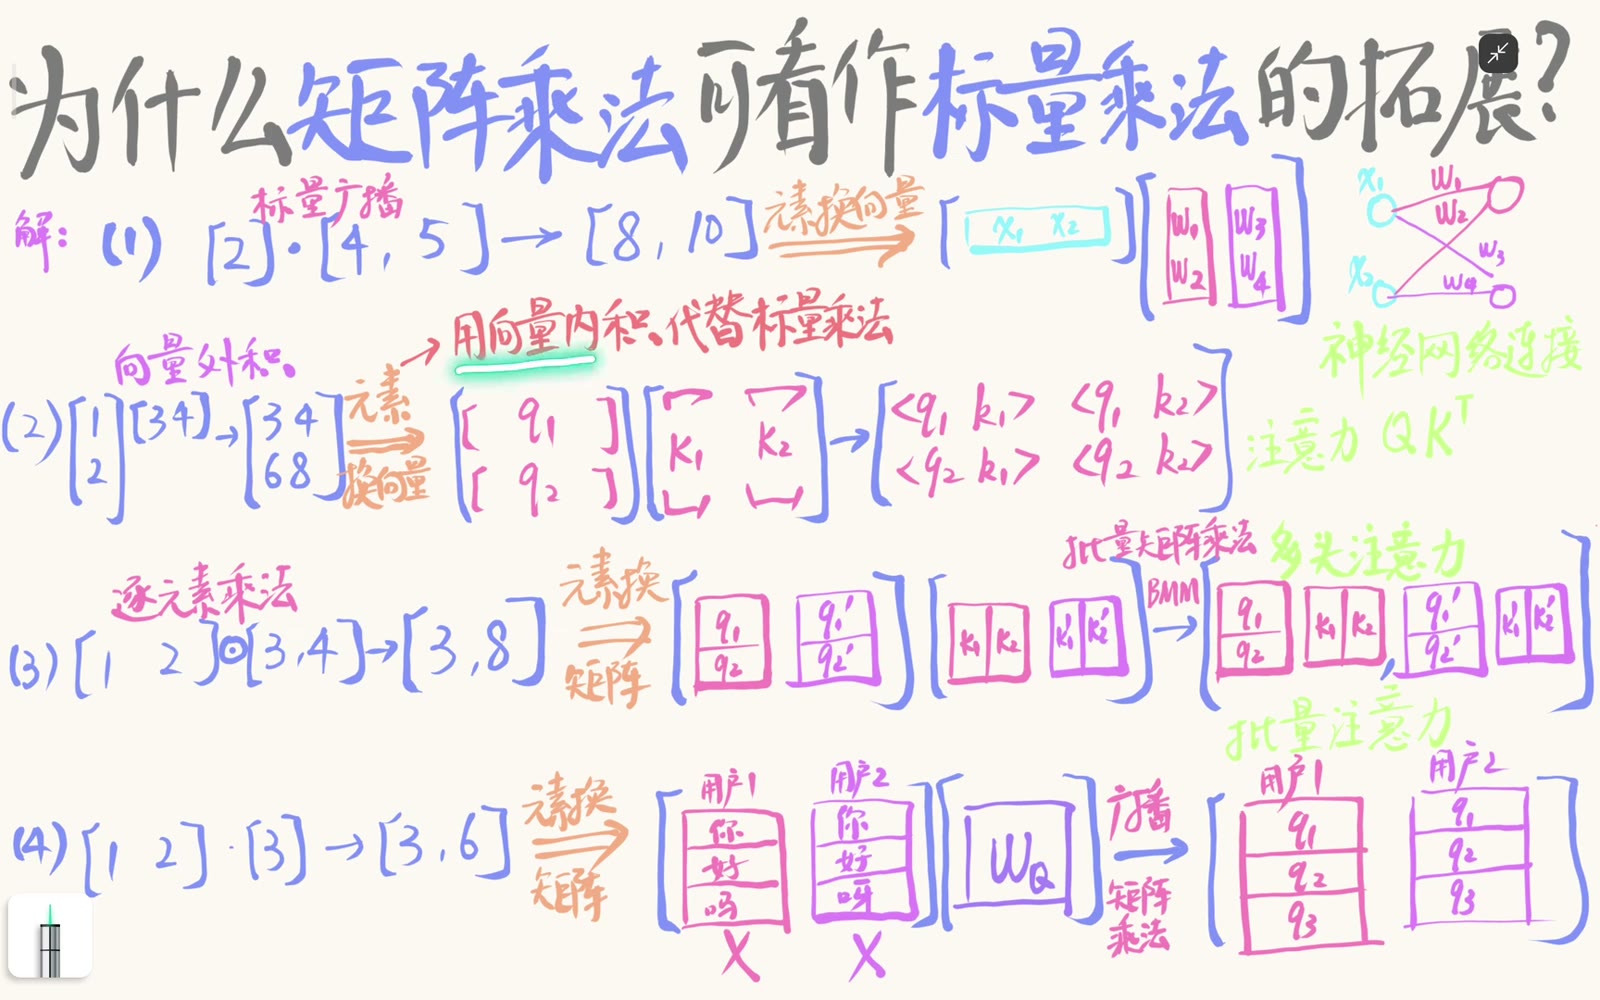 为什么矩阵乘法可看作标量乘法的拓展?
标量广播
解: (1) [2]·[4, 5]→[8, 10] 元素换向量 [x₁ x₂][w₁ w₃
w₂ w₄]
x₁ w₁
w₂
w₃
x₂ w₄
神经网络连接
→用向量内积代替标量乘法
向量外积
(2)[1
2][3 4]→[3 4
6 8] 元素换向量 [[q₁]
[q₂]][k₁ k₂]→[<q₁ k₁> <q₁ k₂>
<q₂ k₁> <q₂ k₂>] 注意力 QKᵀ
逐元素乘法
批量矩阵乘法 多头注意力
(3)[1 2]⊙[3,4]→[3,8] 元素换矩阵 [q₁ q₁'
q₂ q₂'][k₁ k₂ k₁' k₂'] BMM → [q₁
q₂ k₁ k₂, q₁'
q₂' k₁' k₂']
批量注意力
(4)[1 2]·[3]→[3,6] 元素换矩阵
用户1 用户2
你 你
好 好
吗 呀
X X
W_Q
广播
→
矩阵
乘法
用户1 用户2
q₁ q₁
q₂ q₂
q₃ q₃